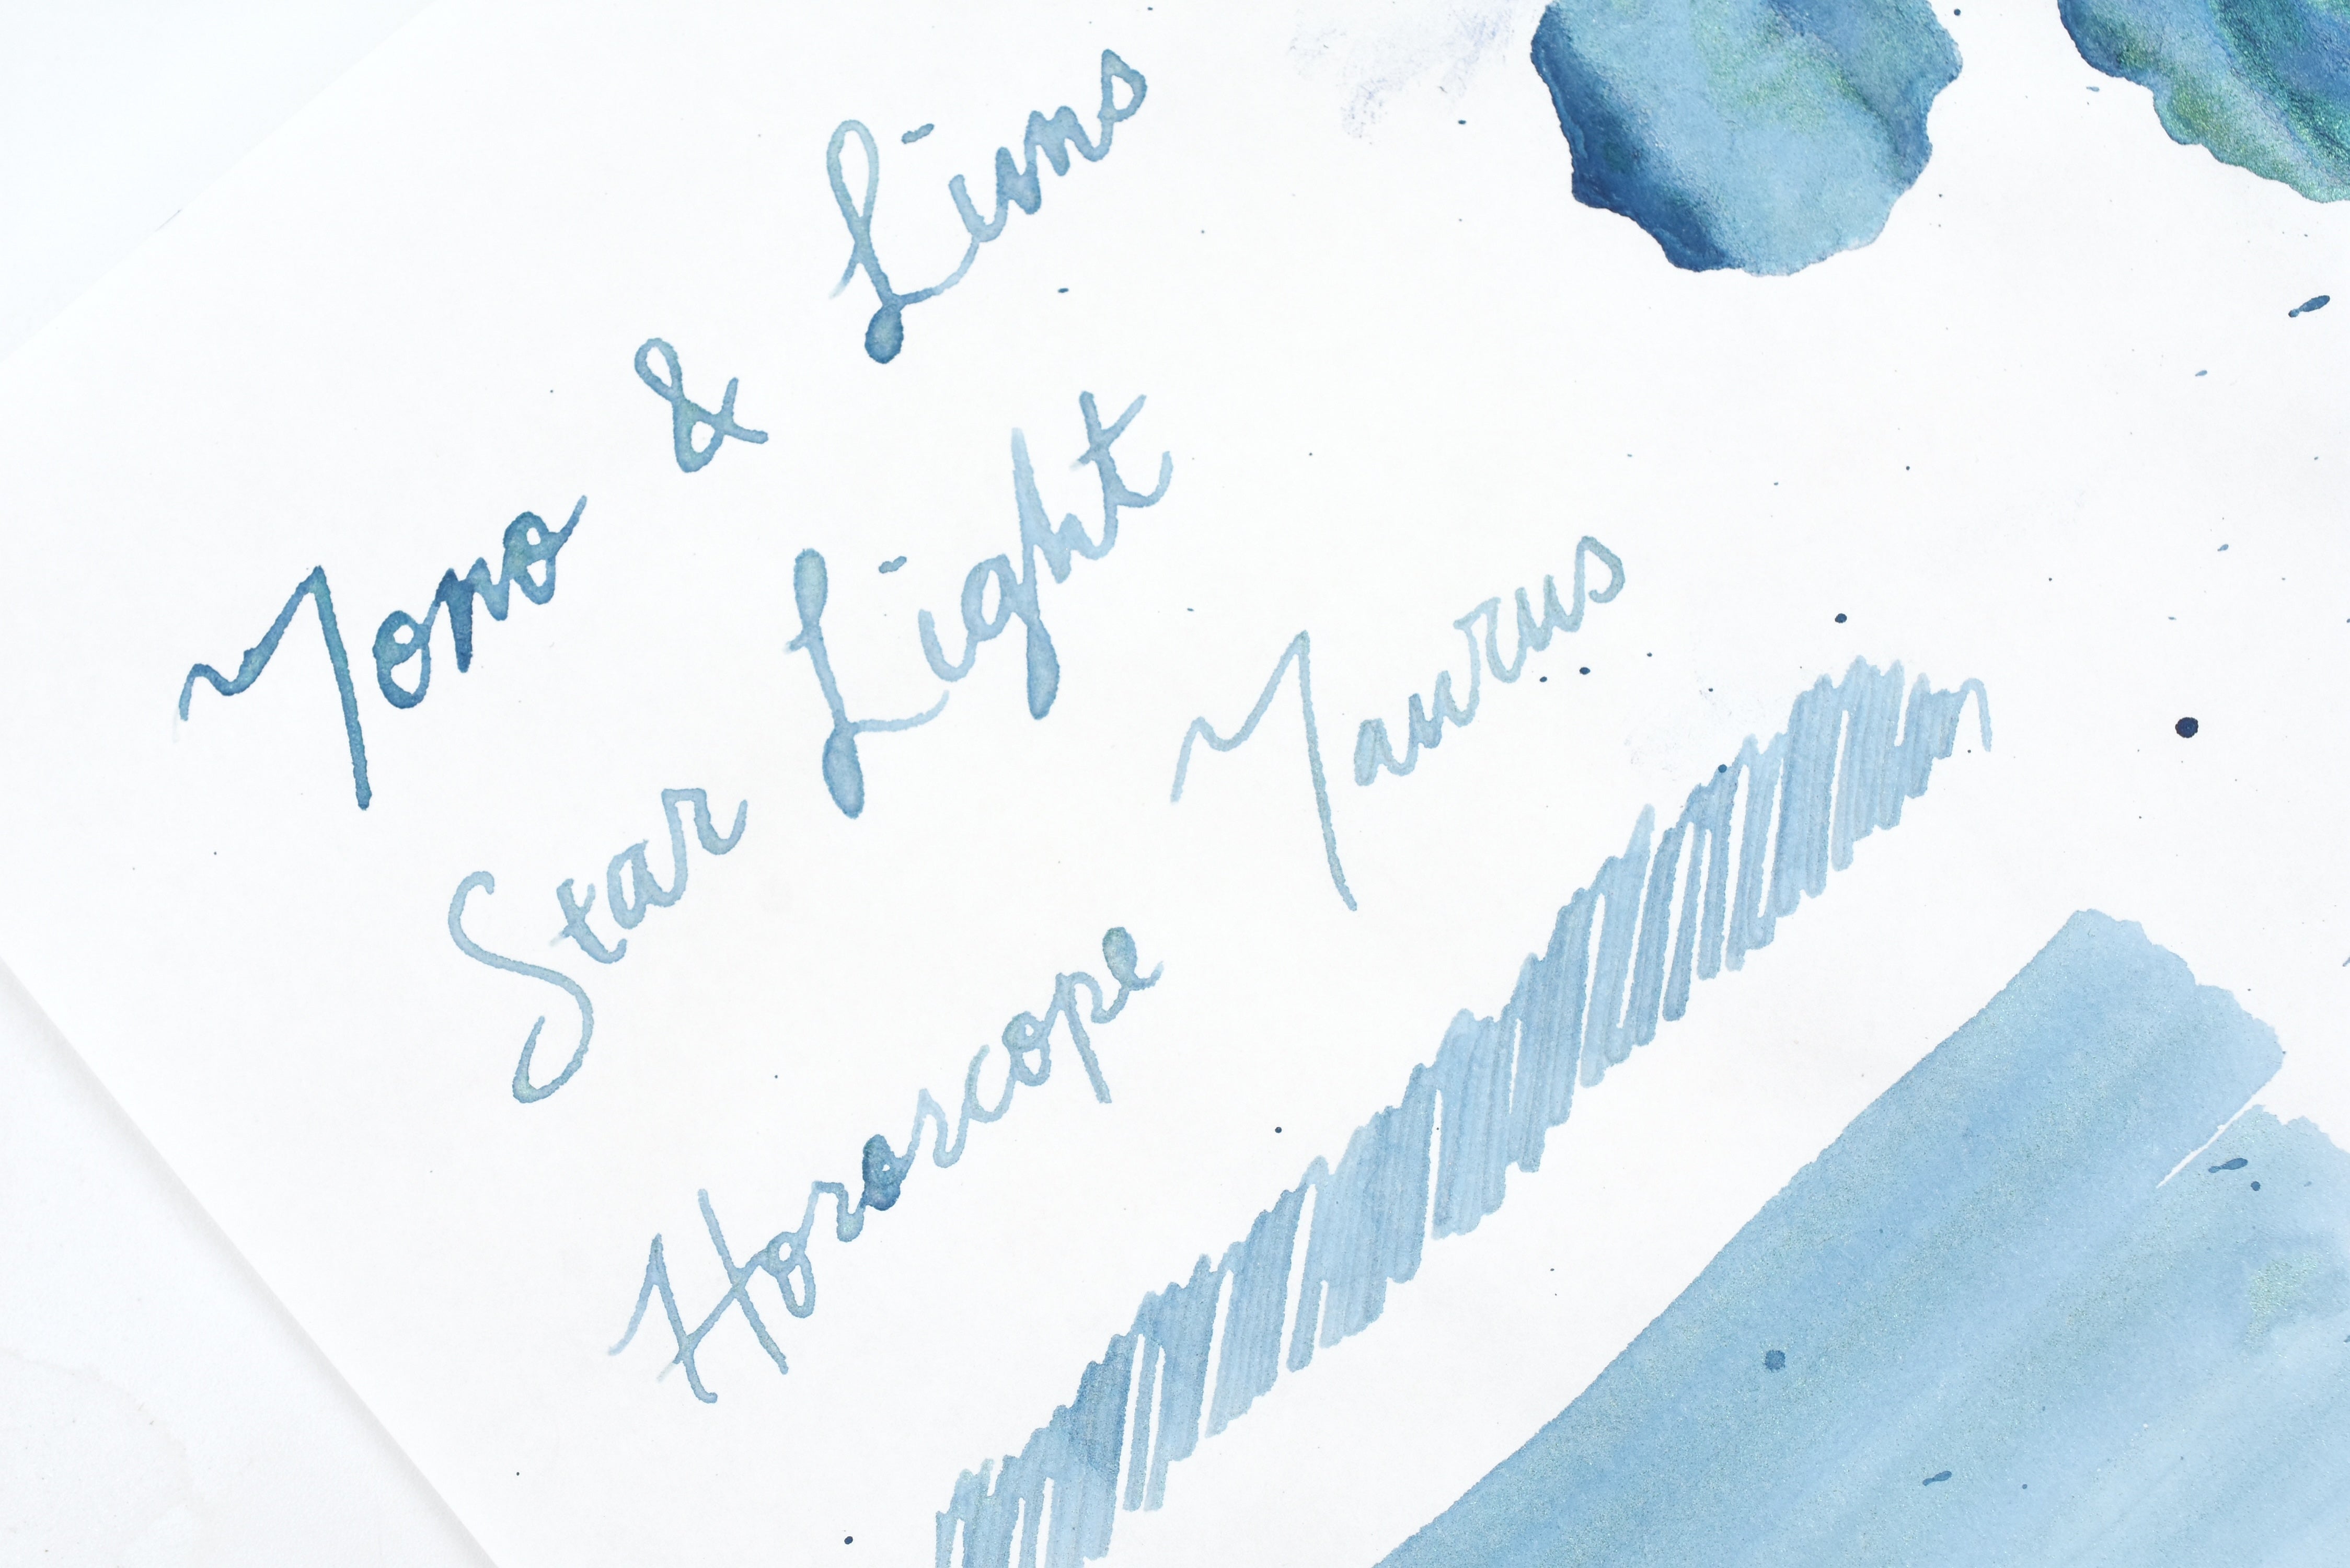 Tono & Lims
Star Light
Horoscope Taurus